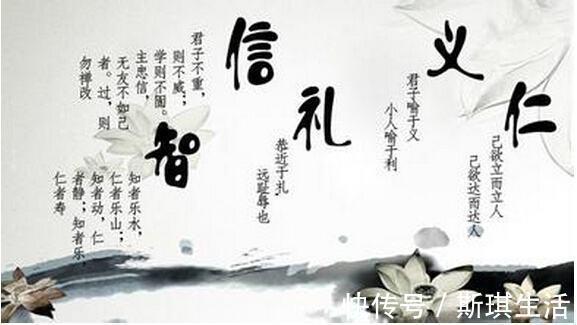 仁
己欲立而立人
己欲达而达人
义
君子喻于义
小人喻于利
礼
恭近于礼，
远耻辱也
信
君子不重，
则不威；
学则不固。
主忠信，
无友不如己
者。过，则
勿禅改
智
知者乐水，
仁者乐山；
知者动，仁
者静；知者乐，
仁者寿
快传号 / 斯琪生活